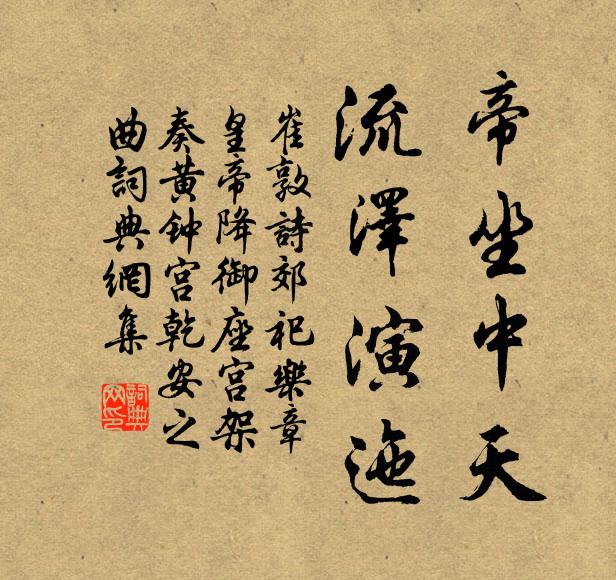 帝坐中天
流澤演迤
崔敦詩郊祀樂章
皇帝降御座宫架
奏黄钟宫乾安之
曲詞典網集
詞典
网印